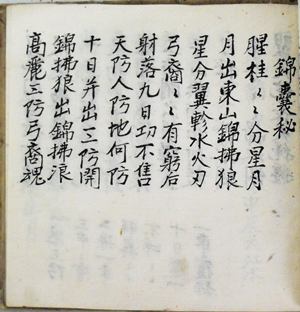 錦囊秘
腥桂〻〻分星月
月出東山錦拂狼
星分翼軫水火刃
弓裔〻〻有窮后
射落九日功不售
天防人防地何防
十日并出三防開
錦拂狼出錦拂浪
高麗三防弓裔魂